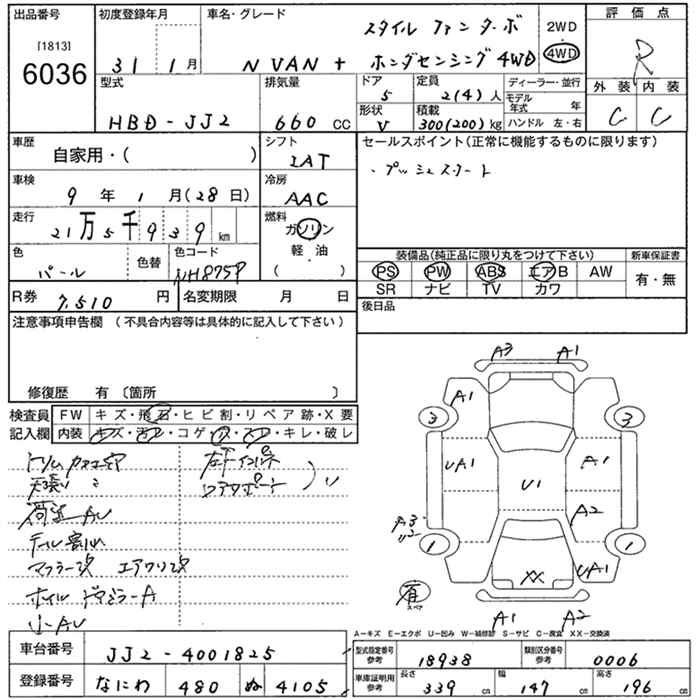 出品番号
[1813]
6036
初度登録年月
31 1月
車名・グレード
スタイル ファン ターボ
N VAN + ホンダセンシング 4WD
2WD
4WD
評価点
R
外装 内装
C C
型式
HBD-JJ2
排気量
660 CC
ドア
5
定員
2(4)人
形状
V
積載
300(200)kg
ディーラー・並行
モデル年式 年
ハンドル 左・右
車歴
自家用・( )
シフト
IAT
車検
9年 1月(28日)
冷房
AAC
走行
21万5千939km
燃料
ガソリン
軽・油
( )
色
パール
色替
色コード
NH875P
R券 7,510 円
名変期限 月 日
セールスポイント(正常に機能するものに限ります)
・プッシュスタート
装備品(純正品に限り丸をつけて下さい)
PS PW ABS エアB AW
SR ナビ TV カワ
新車保証書
有・無
後日品
注意事項申告欄 (不具合内容等は具体的に記入して下さい)
修復歴 有〔箇所 〕
検査員記入欄
FW キズ・飛石・ヒビ割・リペア跡・X要
内装 キズ・汚レ・コゲ・穴・スレ・キレ・破レ
テール割れ
マフラー改 エアクリ改
ホイル ドアミラーA
小AU
A3 A1
A1
3 3
UA1 A1
U1
A3 A2
1 1
UA1
XX
有
スペア
A1 A2
A-キズ E-エクボ U-凹み W-補修跡 S-サビ C-腐食 XX-交換済
車台番号 JJ2-4001825
登録番号 なにわ 480 ぬ 4105
型式指定番号 参考 18938
類別区分番号 参考 0006
車庫証明用 参考
長さ 339 cm
幅 147 cm
高さ 196 cm